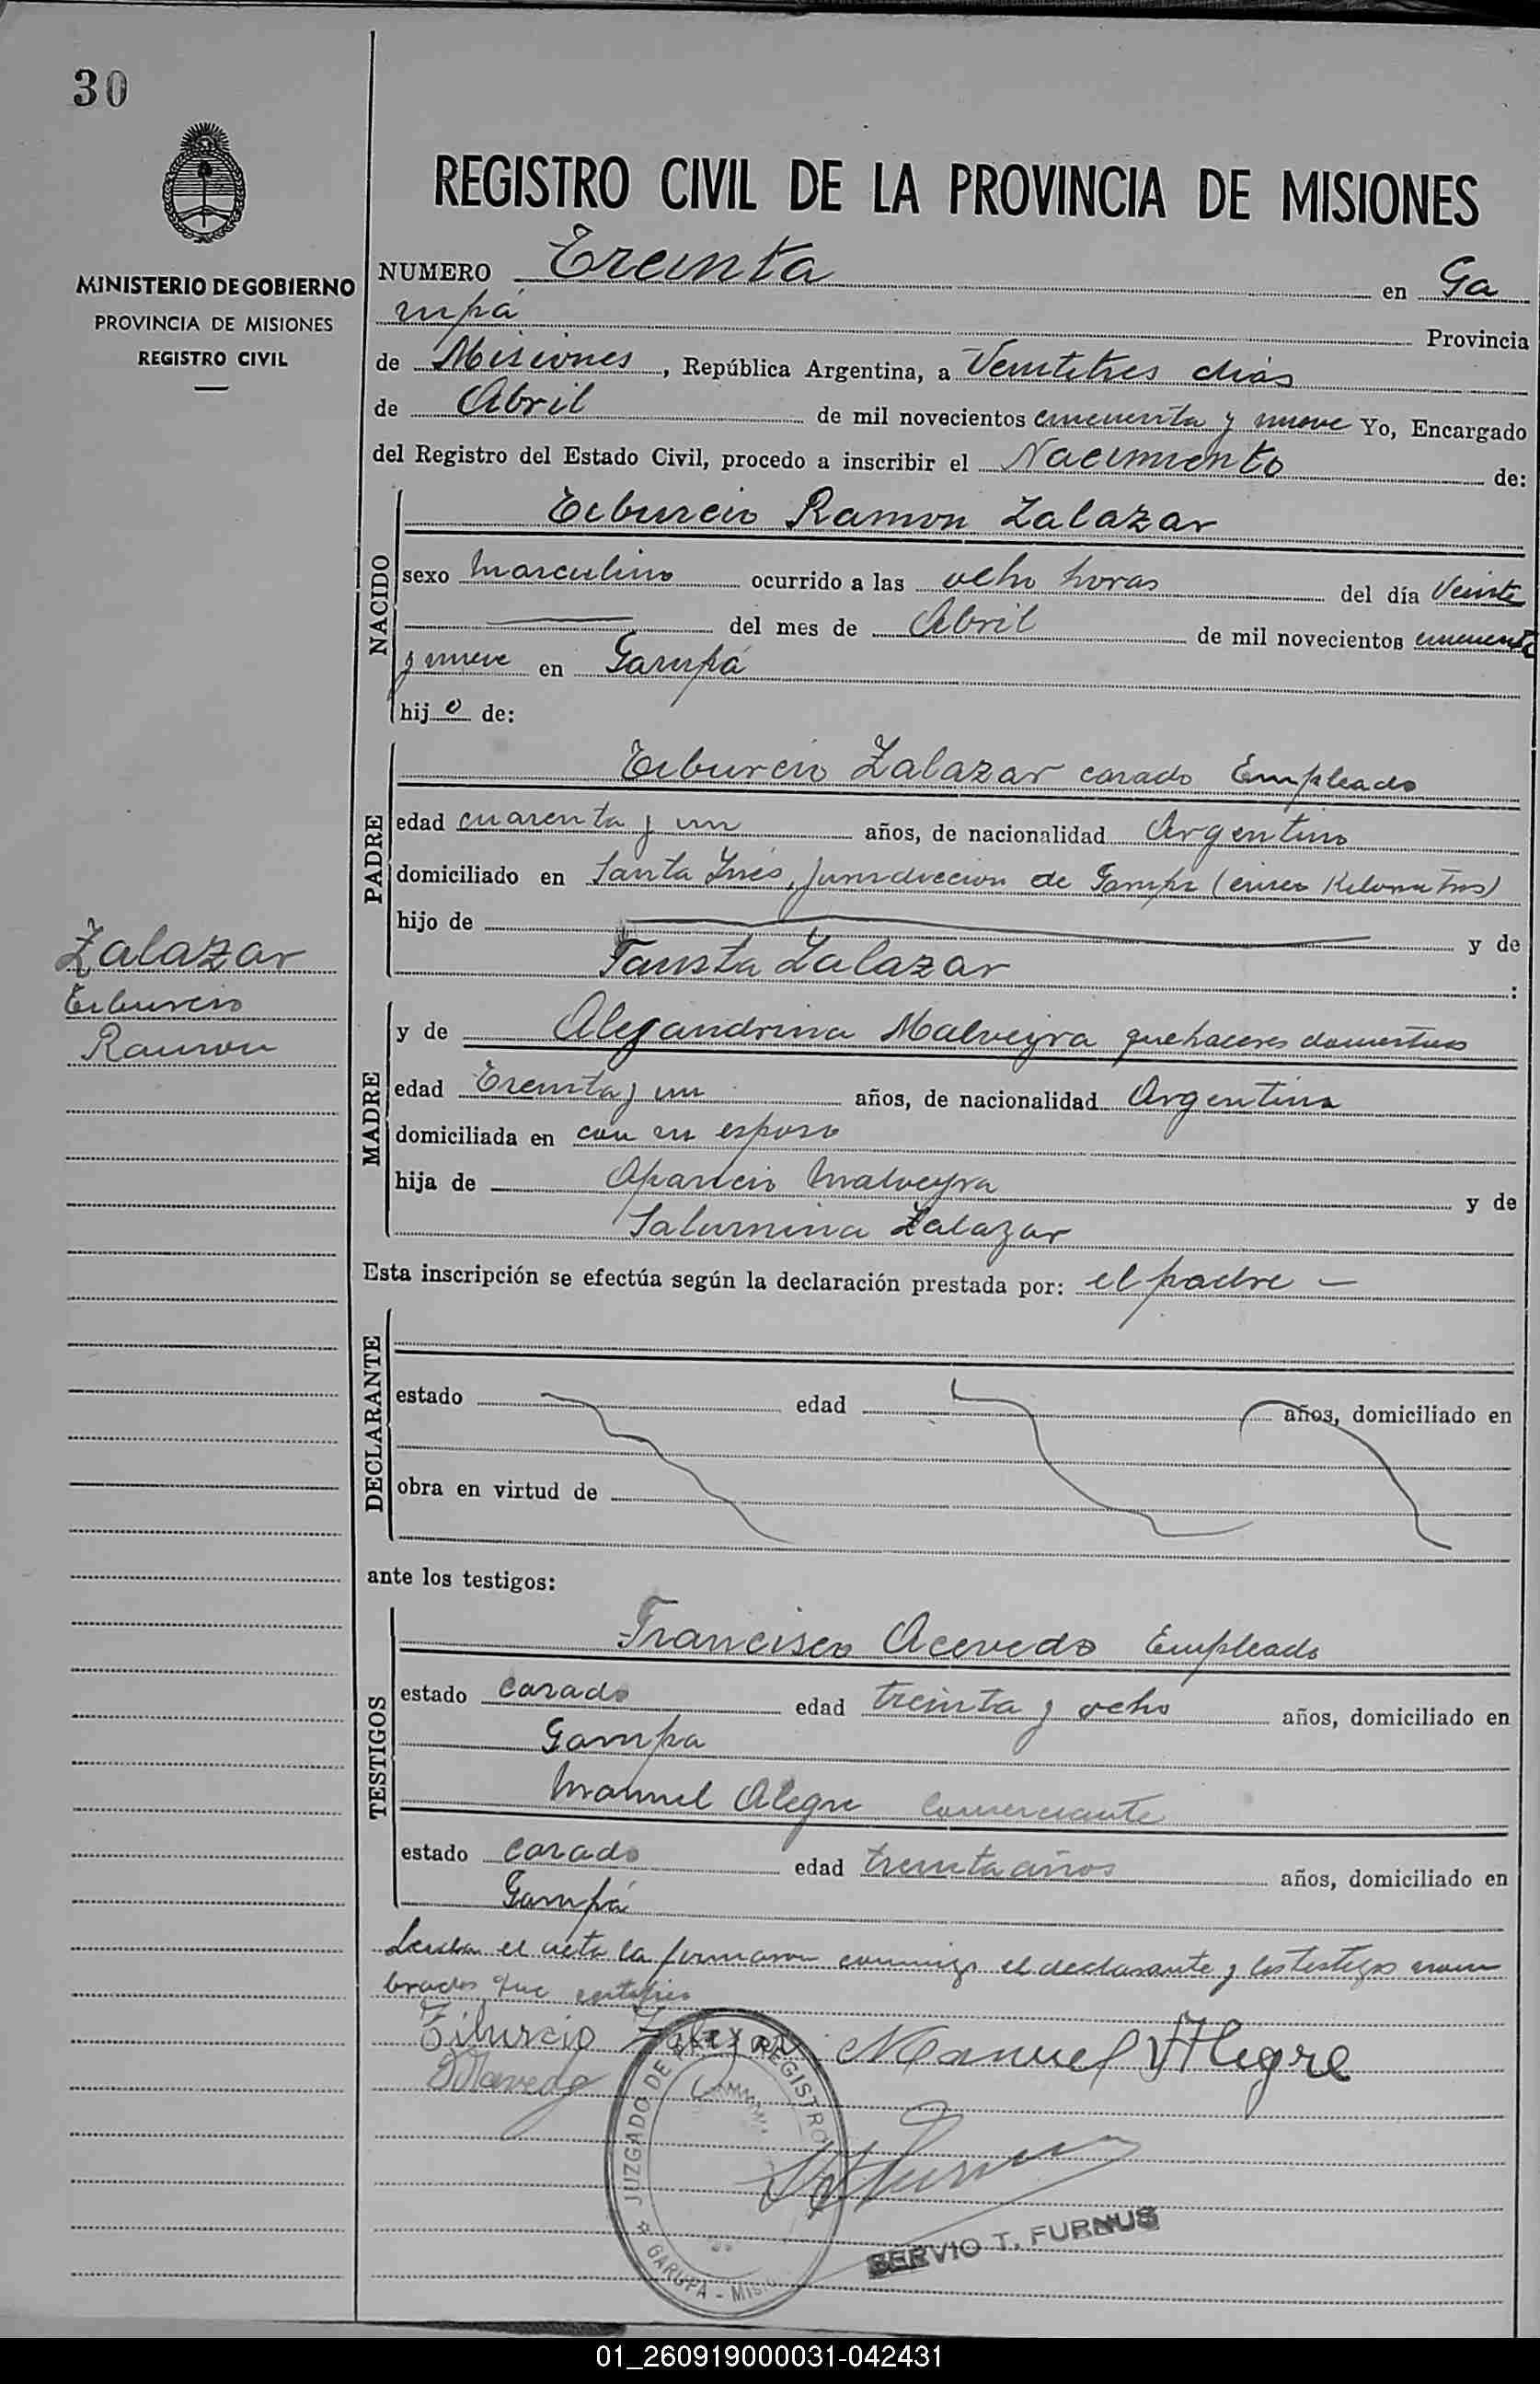 30
MINISTERIO DE GOBIERNO
PROVINCIA DE MISIONES
REGISTRO CIVIL
REGISTRO CIVIL DE LA PROVINCIA DE MISIONES
NUMERO Treinta en Ga
rupá Provincia
de Misiones, República Argentina, a Veintitres dias
de Abril de mil novecientos cincuenta y nueve Yo, Encargado
del Registro del Estado Civil, procedo a inscribir el Nacimiento de:
NACIDO
Tiburcio Ramon Zalazar
sexo Masculino ocurrido a las ocho horas del día Veinte
del mes de Abril de mil novecientos cincuenta
y nueve en Garupá
hijo de:
PADRE
Tiburcio Zalazar casado Empleado
edad cuarenta y un años, de nacionalidad Argentino
domiciliado en Santa Inés, jurisdiccion de Garupa (cinco Kilometros)
hijo de y de
Fausta Zalazar :
Zalazar
Tiburcio
Ramon
MADRE
y de Alejandrina Malveyra quehaceres domesticos
edad Treinta y un años, de nacionalidad Argentina
domiciliada en con su esposo
hija de Aparicio Malveyra y de
Saturnina Zalazar
Esta inscripción se efectúa según la declaración prestada por: el padre —
DECLARANTE
estado edad años, domiciliado en
obra en virtud de
ante los testigos:
TESTIGOS
Francisco Acevedo Empleado
estado casado edad treinta y ocho años, domiciliado en
Garupa
Manuel Alegre Comerciante
estado casado edad treinta años años, domiciliado en
Garupá
Leida el acta la firmaron conmigo el declarante y los testigos nom
brados que certifico
Tiburcio Zalazar Manuel Alegre
JUZGADO DE PAZ Y REGISTRO
GARUPA - MISIO
SERVIO T. FURNUS
01_260919000031-042431